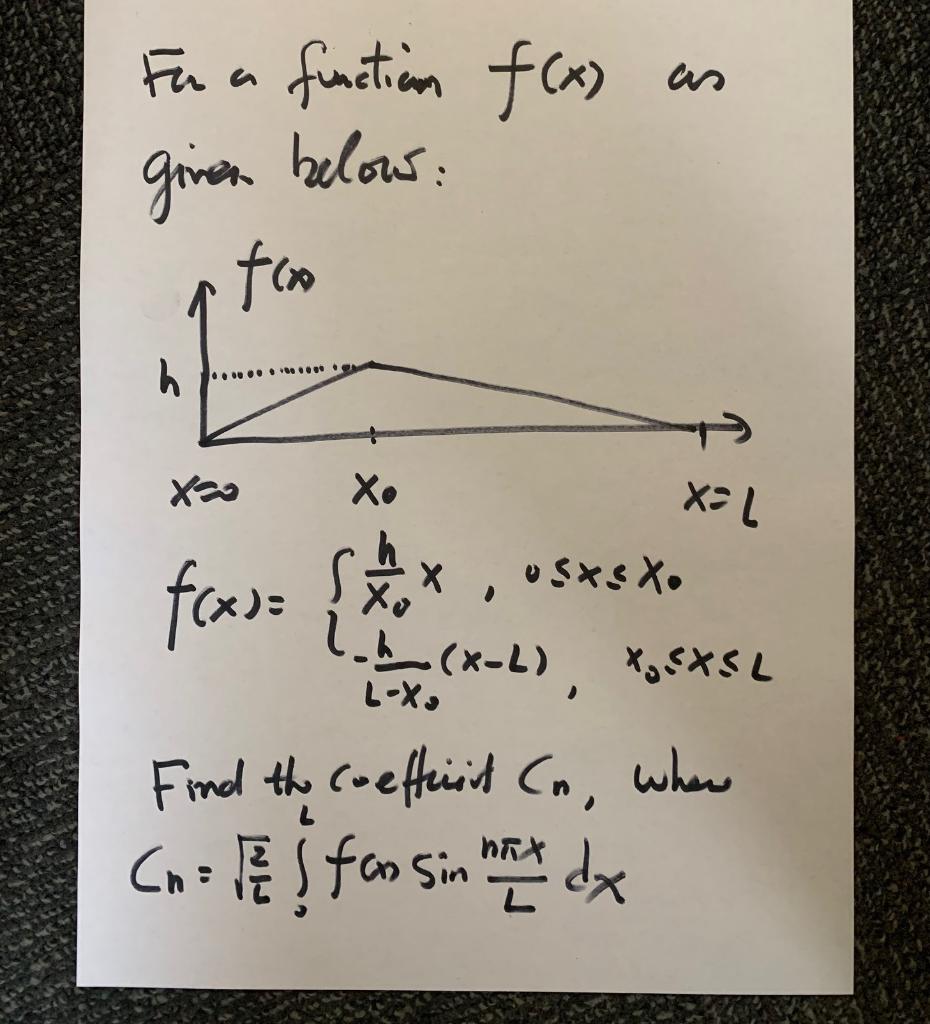 For a function f(x) as
given below:
f(x)
h
x=0 x₀ x=L
f(x)= { h/x₀ x , 0≤x≤x₀
-h/(L-x₀) (x-L) , x₀≤x≤L
Find the coefficient Cn, where
Cn = √(2/L) ∫₀ᴸ f(x) sin nπx/L dx